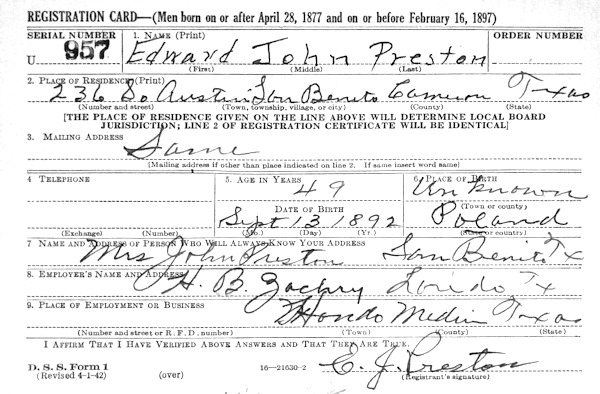 REGISTRATION CARD—(Men born on or after April 28, 1877 and on or before February 16, 1897)
SERIAL NUMBER 1. NAME (Print) ORDER NUMBER
U 957 Edward John Preston
(First) (Middle) (Last)
2. PLACE OF RESIDENCE (Print)
236 So Austin San Benito Cameron Texas
(Number and street) (Town, township, village, or city) (County) (State)
[THE PLACE OF RESIDENCE GIVEN ON THE LINE ABOVE WILL DETERMINE LOCAL BOARD
JURISDICTION; LINE 2 OF REGISTRATION CERTIFICATE WILL BE IDENTICAL]
3. MAILING ADDRESS
Same
[Mailing address if other than place indicated on line 2. If same insert word same]
4 TELEPHONE 5. AGE IN YEARS 6. PLACE OF BIRTH
49 Unknown
DATE OF BIRTH (Town or county)
Sept 13 1892 Poland
(Exchange) (Number) (Mo.) (Day) (Yr.) (State or country)
7 NAME AND ADDRESS OF PERSON WHO WILL ALWAYS KNOW YOUR ADDRESS
Mrs John Preston San Benito Tx
8. EMPLOYER'S NAME AND ADDRESS
H. B. Zachry Laredo Tx
9. PLACE OF EMPLOYMENT OR BUSINESS
Hondo Medin Texas
(Number and street or R. F. D. number) (Town) (County) (State)
I AFFIRM THAT I HAVE VERIFIED ABOVE ANSWERS AND THAT THEY ARE TRUE.
E. J. Preston
D. S. S. Form 1 16—21630-2 (Registrant's signature)
(Revised 4-1-42) (over)